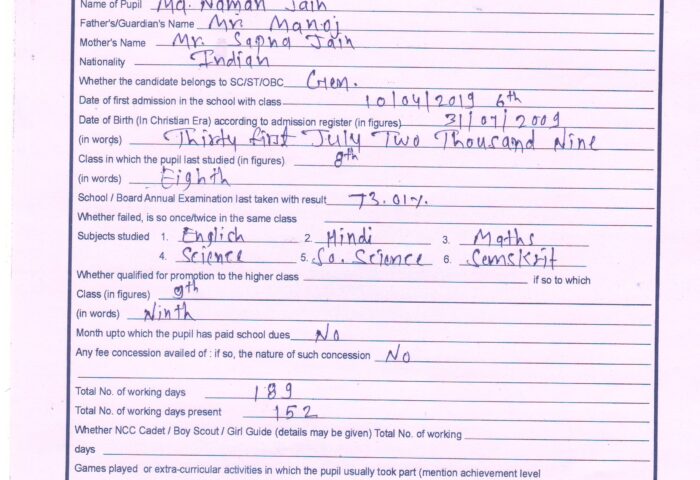 Name of Pupil Md. Naman Jain
Father's/Guardian's Name Mr. Manoj
Mother's Name Mr. Sapna Jain
Nationality Indian
Whether the candidate belongs to SC/ST/OBC Gen.
Date of first admission in the school with class 10/04/2019 6th
Date of Birth (In Christian Era) according to admission register (in figures) 31/07/2009
(in words) Thirty first July Two Thousand Nine
Class in which the pupil last studied (in figures) 8th
(in words) Eighth
School / Board Annual Examination last taken with result 73.01%.
Whether failed, is so once/twice in the same class
Subjects studied 1. Englich 2. Hindi 3. Maths
4. Science 5. So. Science 6. Semskrit
Whether qualified for promotion to the higher class if so to which
Class (in figures) 9th
(in words) Ninth
Month upto which the pupil has paid school dues No
Any fee concession availed of : if so, the nature of such concession No
Total No. of working days 189
Total No. of working days present 152
Whether NCC Cadet / Boy Scout / Girl Guide (details may be given) Total No. of working
days
Games played or extra-curricular activities in which the pupil usually took part (mention achievement level